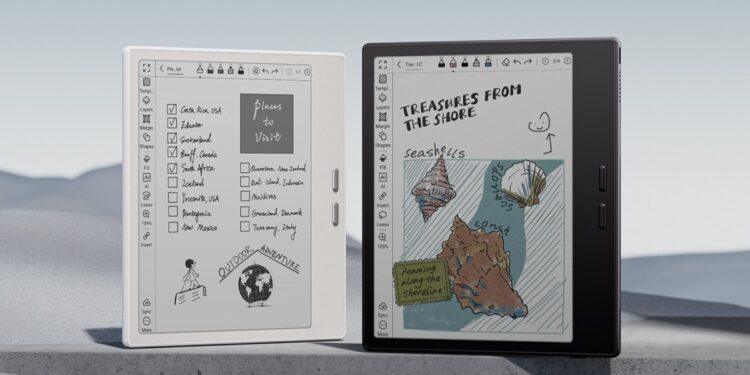 Templ...
Layers
Margin
Shapes
Fill
AI
AI
Lasso
Insert
Sync
More
Costa Rica, USA
Switzerland
Banff, Canada
South Africa
Iceland
Yosemite, USA
Patagonia
New Mexico
places
to
visit
Queenstown, New Zealand
Bali Island, Indonesia
Maldives
Greenland, Denmark
Tuscany, Italy
OUTDOOR ADVENTURE
2/4
Templ...
Layers
Margin
Shapes
Fill
AI
AI
Insert
Lasso
Sync
More
TREASURES FROM
THE SHORE
seashells
scallops
conch
Roaming
along the
shoreline!